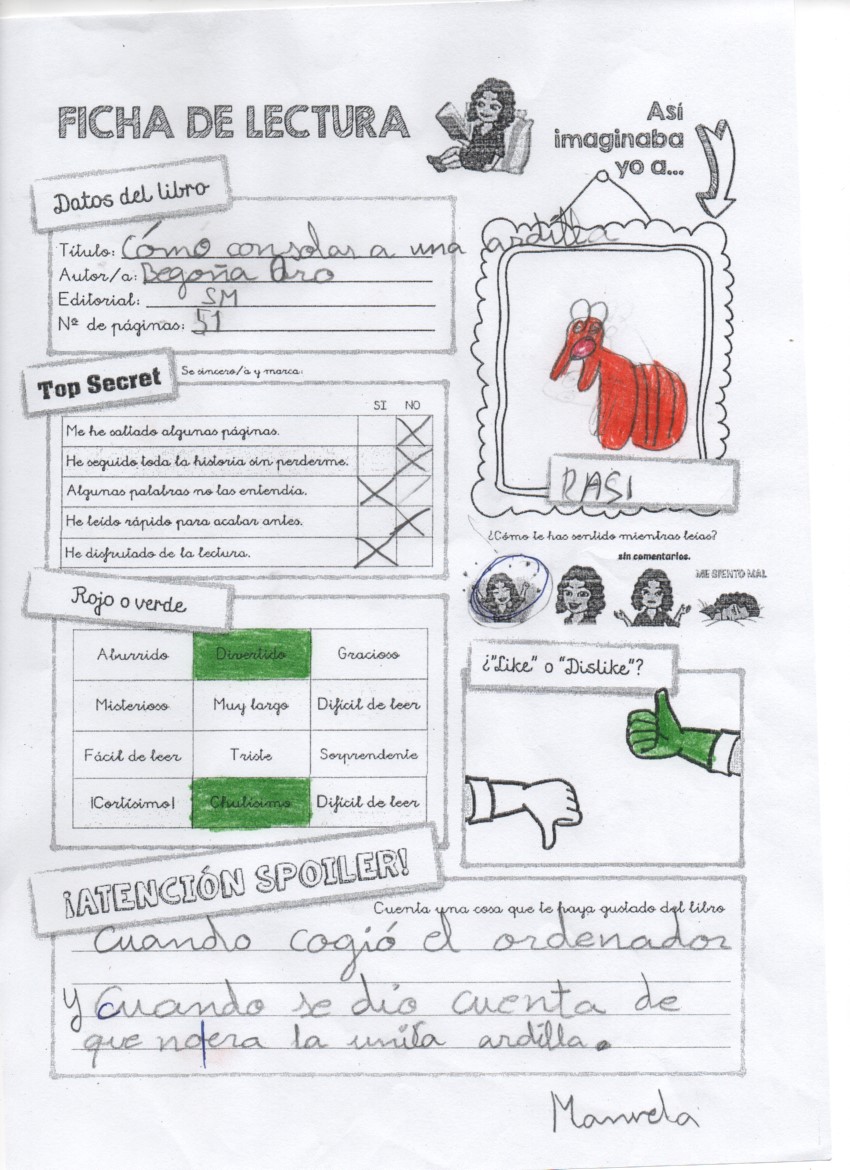 FICHA DE LECTURA
Así
imaginaba
yo a...
Datos del libro
Título: Cómo consolar a una ardilla
Autor/a: Begoña Oro
Editorial: SM
Nº de páginas: 51
RASI
Top Secret
Se sincero/a y marca:
SI NO
Me he saltado algunas páginas.
He seguido toda la historia sin perderme.
Algunas palabras no las entendía.
He leído rápido para acabar antes.
He disfrutado de la lectura.
¿Cómo te has sentido mientras leías?
sin comentarios.
ME SIENTO MAL
Rojo o verde
Aburrido Divertido Gracioso
Misterioso Muy largo Difícil de leer
Fácil de leer Triste Sorprendente
¡Cortísimo! Chulísimo Difícil de leer
¿"Like" o "Dislike"?
¡ATENCIÓN SPOILER!
Cuenta una cosa que te haya gustado del libro
Cuando cogió el ordenador
y cuando se dio cuenta de
que no era la unića ardilla.
Manuela